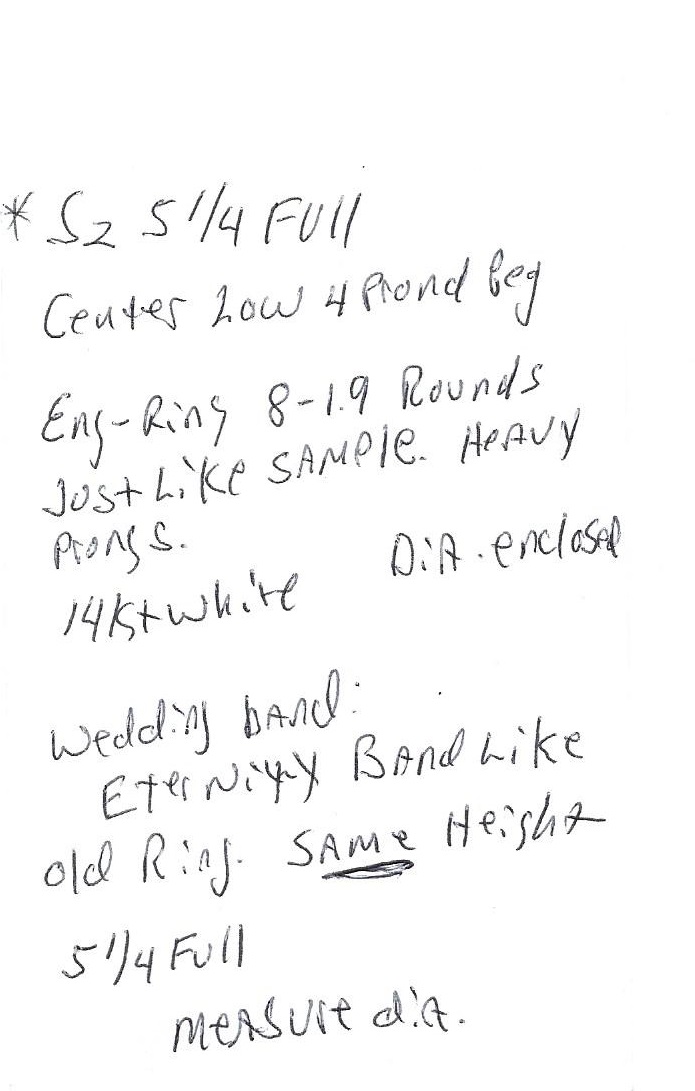 * Sz 5 1/4 Full
Center Low 4 Prond Peg
Eng-Ring 8-1.9 Rounds
Just Like SAMPle. HeAvy
Prongs.
DiA. enclosed
14kt white
Wedding bAnd:
Eternityy BAnd Like
old Ring. SAMe Height
5 1/4 Full
MeAsure diA.